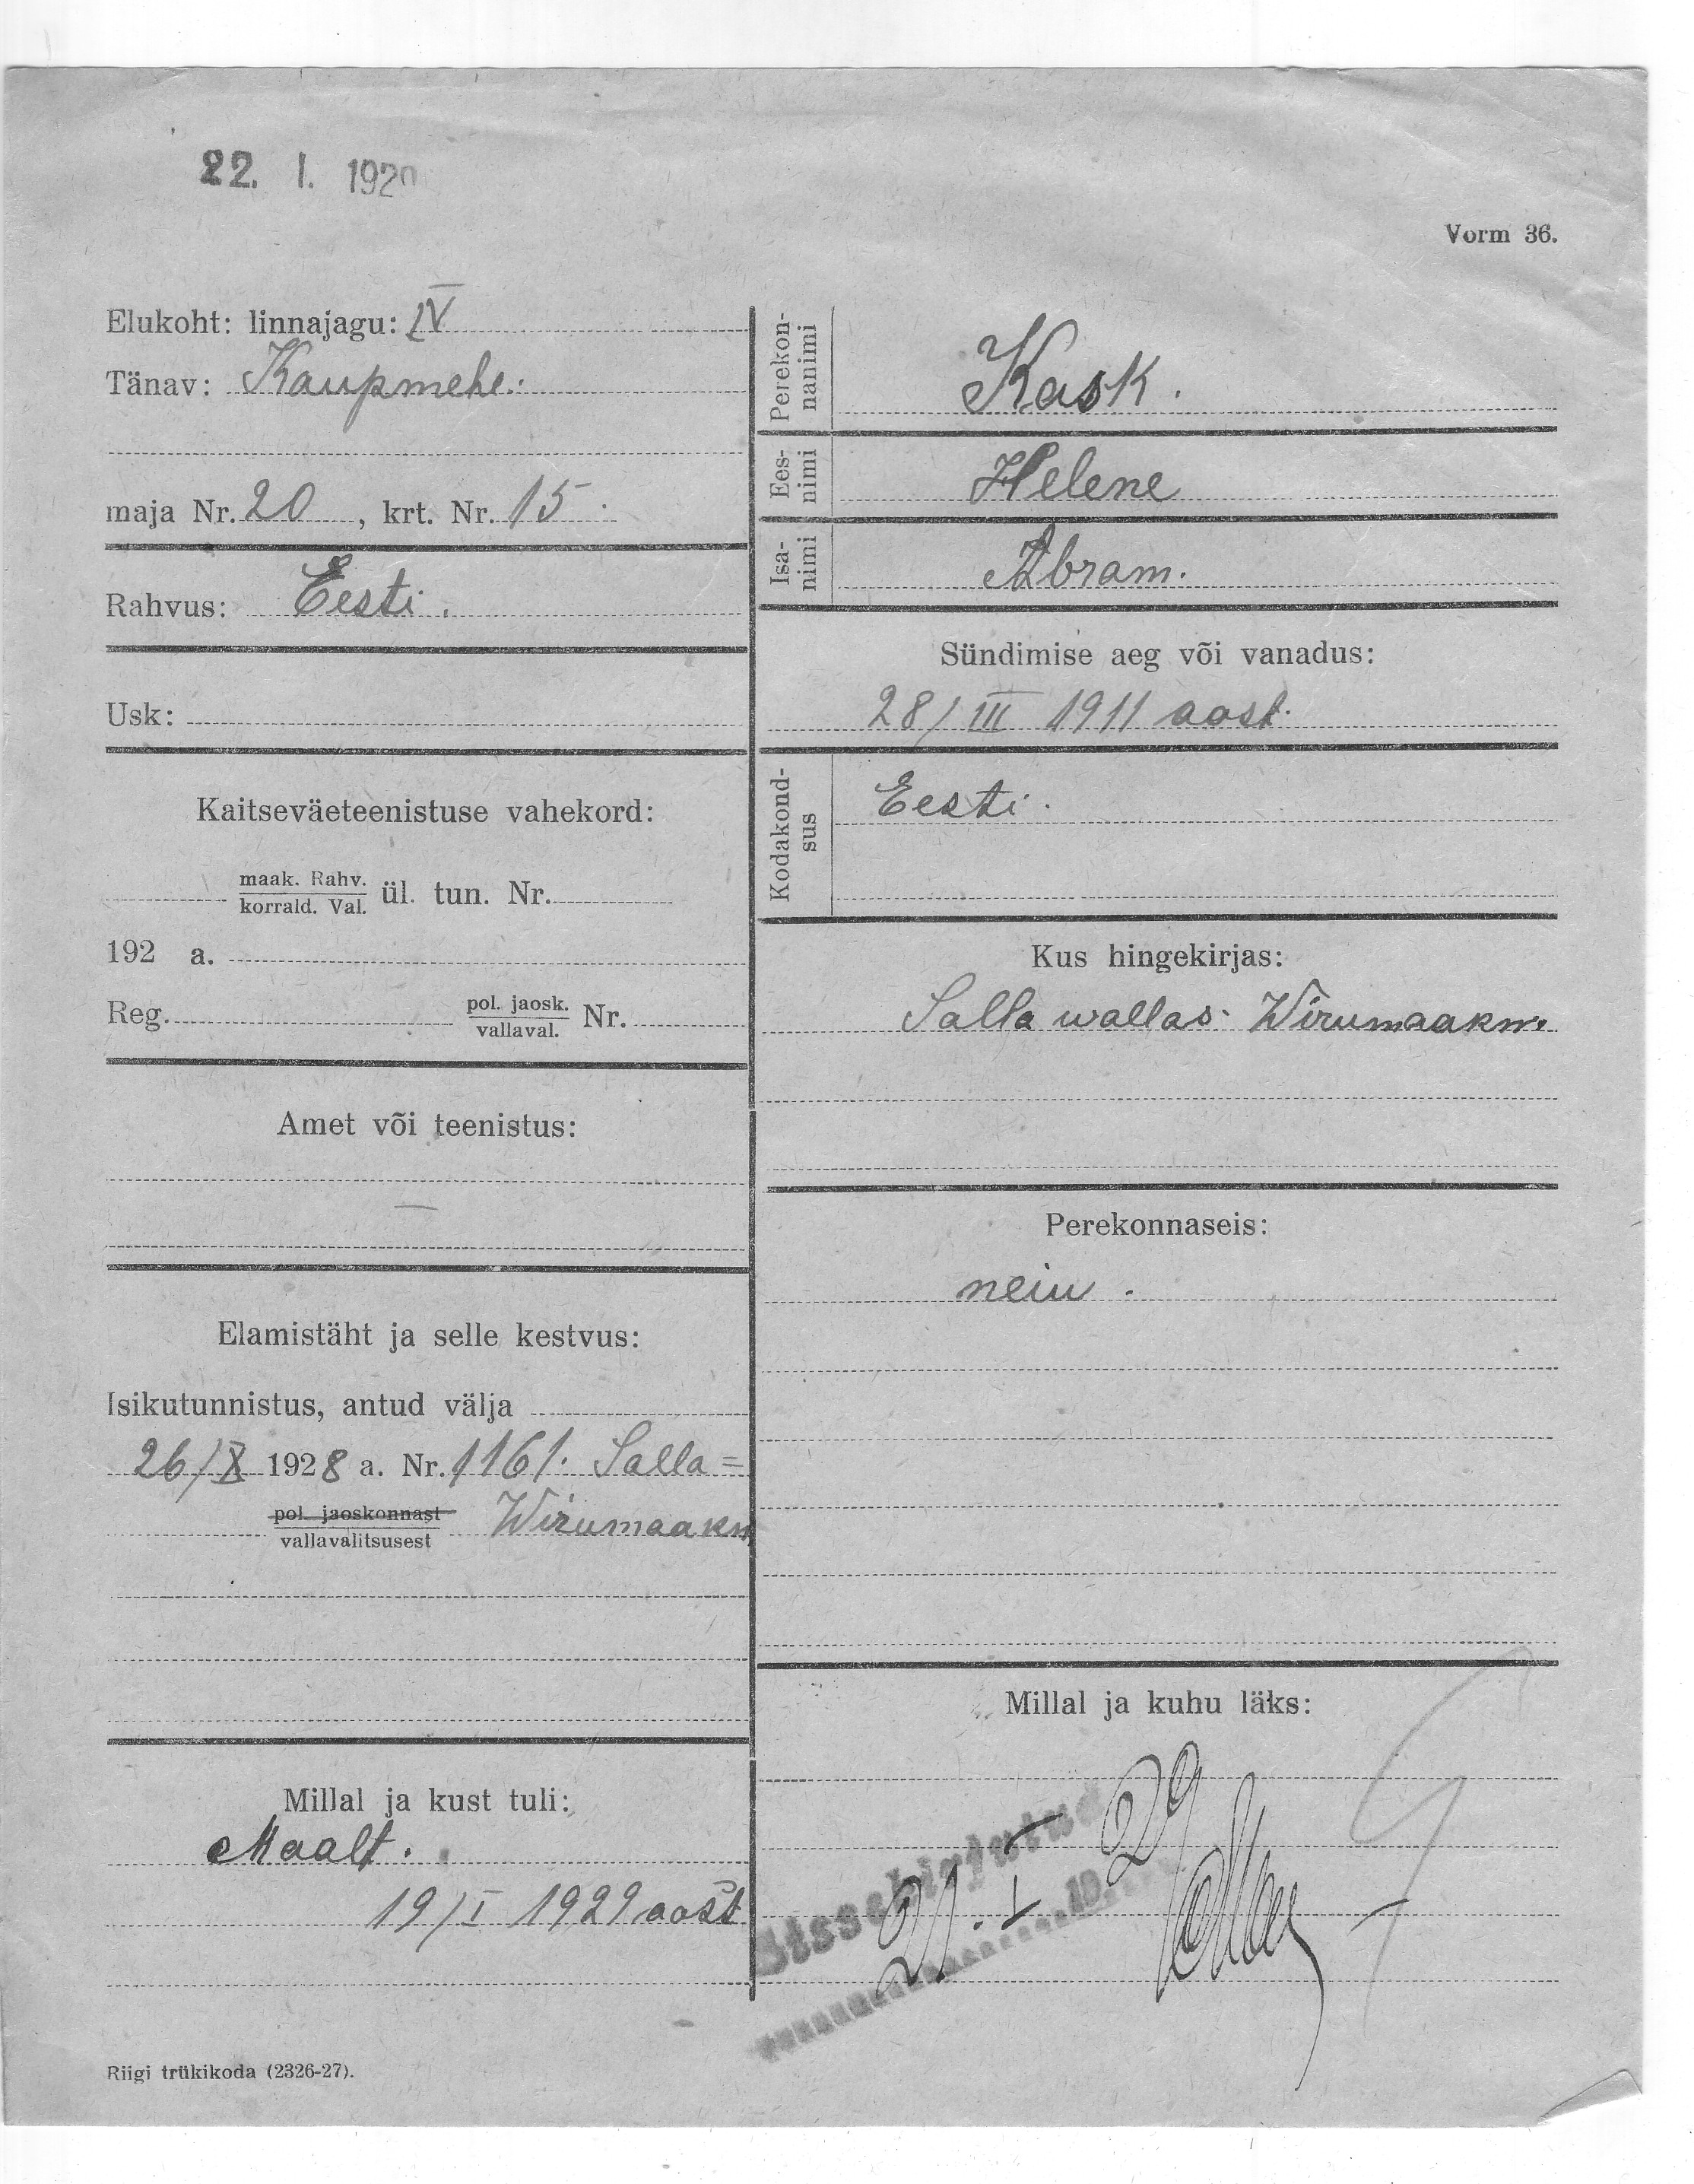 22. I. 192
Vorm 36.
Elukoht: linnajagu: IV
Tänav: Kaupmehe.
maja Nr. 20, krt. Nr. 15.
Rahvus: Eesti.
Usk:
Kaitseväeteenistuse vahekord:
maak. Rahv.
korrald. Val. ül. tun. Nr.
192 a.
Reg. pol. jaosk.
vallaval. Nr.
Amet või teenistus:
—
Elamistäht ja selle kestvus:
Isikutunnistus, antud välja
26/X 1928 a. Nr. 1161. Salla=
pol. jaoskonnast
vallavalitsusest Wirumaakm
Millal ja kust tuli:
Maalt.
19/I 1929 aast
Riigi trükikoda (2326-27).
Perekon-
nanimi Kask.
Ees-
nimi Helene
Isa-
nimi Abram.
Sündimise aeg või vanadus:
28/III 1911 aast.
Kodakond-
sus Eesti.
Kus hingekirjas:
Salla wallas. Wirumaakm.
Perekonnaseis:
neiu.
Millal ja kuhu läks:
Sissekirjutud
21. I 29